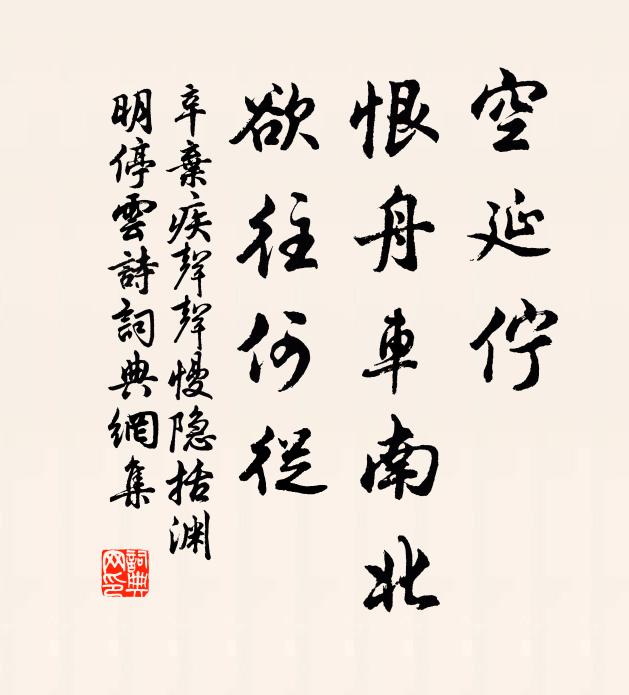 空延佇
恨舟車南北
欲往何從
辛棄疾聲聲慢隐括淵
明停雲詩詞典網集
詞典网印